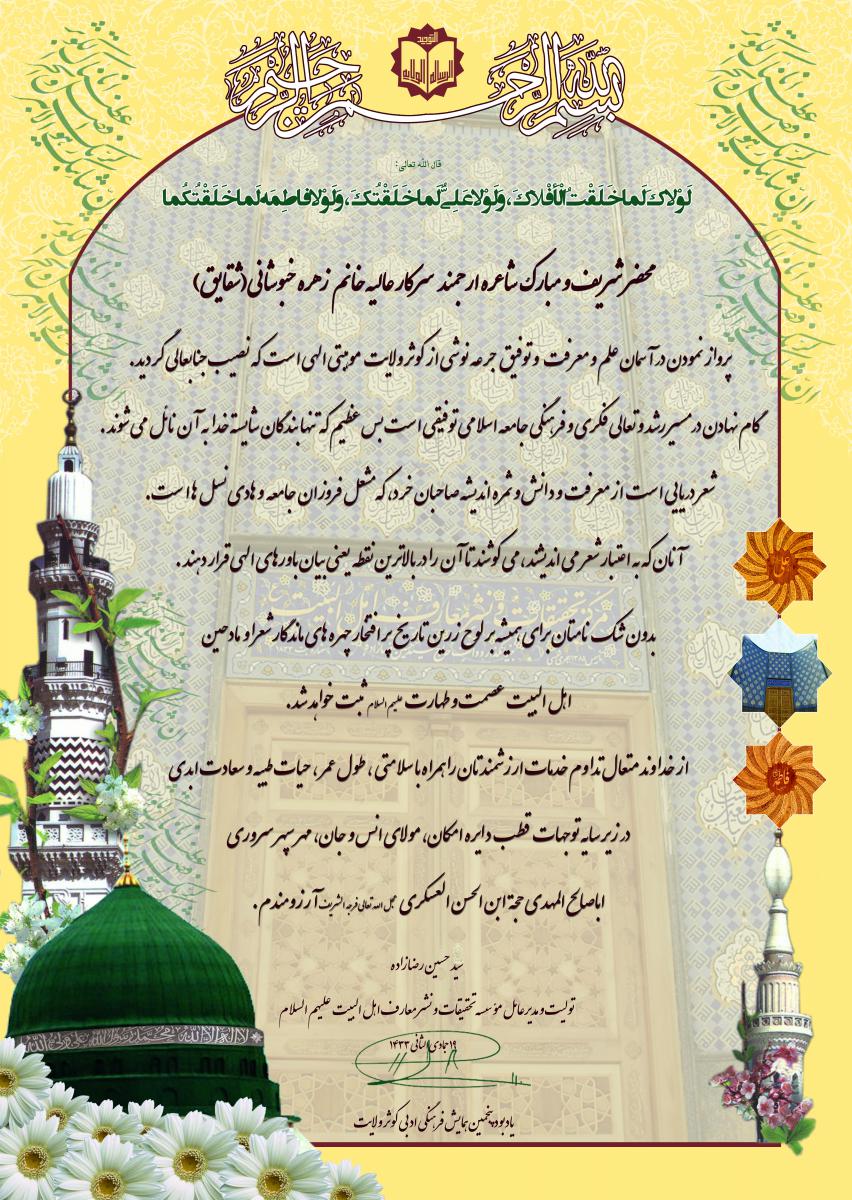 بسم الله الرحمن الرحیم
قال الله تعالی:
لَوْلاكَ لَما خَلَقْتُ الْأَفْلاكَ، وَلَوْلا عَلِيٌّ لَما خَلَقْتُكَ، وَلَوْلا فاطِمَه لَما خَلَقْتُكُما
محضر شریف و مبارک شاعره ارجمند سرکار عالیه خانم زهره خبوشانی (شقایق)
پرواز نمودن در آسمان علم و معرفت و توفیق جرعه نوشی از کوثر ولایت موهبتی الهی است که نصیب جنابعالی گردید.
گام نهادن در مسیر رشد و تعالی فکری و فرهنگی جامعه اسلامی توفیقی است بس عظیم که تنها بندگان شایسته خدا به آن نائل می شوند.
شعر دریایی است از معرفت و دانش و ثمره اندیشه صاحبان خرد، که مشعل فروزان جامعه و هادی نسل ها است.
آنان که به اعتبار شعر می اندیشند، می کوشند تا آن را در بالاترین نقطه یعنی بیان باورهای الهی قرار دهند.
بدون شک نامتان برای همیشه بر لوح زرین تاریخ پر افتخار چهره های ماندگار شعرا و مادحین
اهل البیت عصمت و طهارت علیهم السلام ثبت خواهد شد.
از خداوند متعال تداوم خدمات ارزشمندتان را همراه با سلامتی، طول عمر، حیات طیبه و سعادت ابدی
در زیر سایه توجهات قطب دایره امکان، مولای انس و جان، مهر سپهر سروری
اباصالح المهدی حجة ابن الحسن العسکری عجل الله تعالی فرجه الشریف آرزومندم.
سید حسین رضازاده
تولیت و مدیر عامل مؤسسه تحقیقات و نشر معارف اهل البیت علیهم السلام
۱۹ جمادی الثانی ۱۴۳۳
یادبود پنجمین همایش فرهنگی ادبی کوثر ولایت